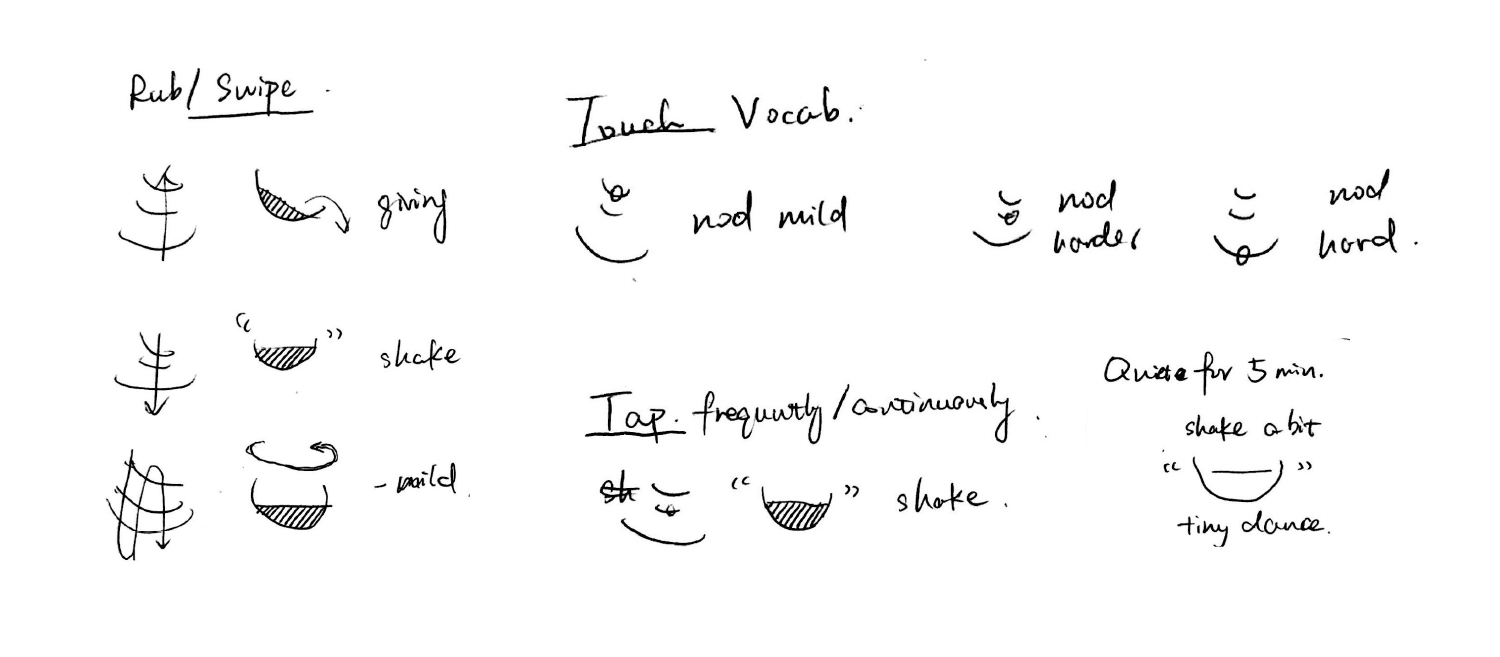 Rub/ Swipe
giving
shake
- mild.
Touch Vocab.
nod mild
nod
harder
nod
hard.
Tap. frequently/continuously.
sh
shake.
Quite for 5 min.
shake a bit
tiny dance.